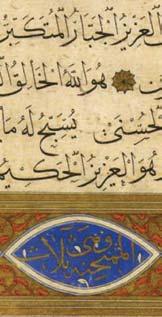 الْعَزِيزُ الْجَبَّارُ الْمُتَكَبِّرُ
هُوَ اللَّهُ الْخَالِقُ
الْحُسْنَى يُسَبِّحُ لَهُ مَا
وَهُوَ الْعَزِيزُ الْحَكِيمُ
الممتحنة ثلاث